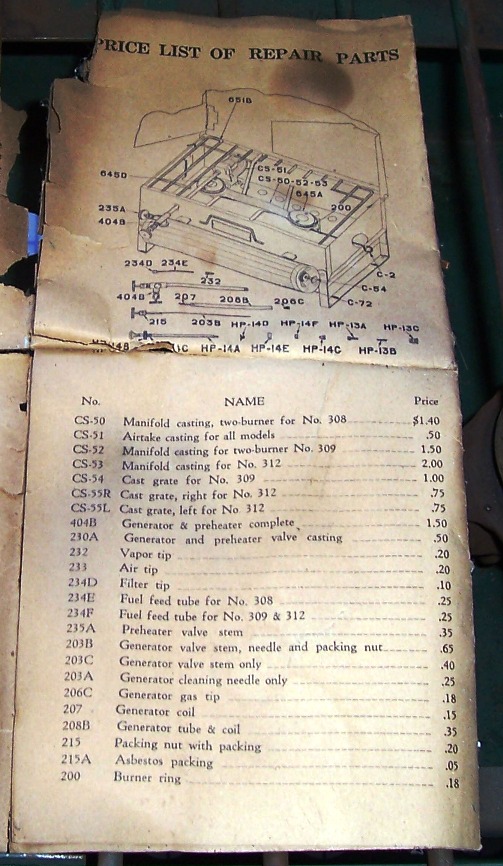 PRICE LIST OF REPAIR PARTS
651B
CS-51
CS-50-52-53
645D
645A
200
235A
404B
234D 234E
C-2
232
C-54
404B 207 208B 206C
C-72
215 203B HP-14D HP-14F HP-13A HP-13C
HP-14A HP-14E HP-14C HP-13B
No. NAME Price
CS-50 Manifold casting, two-burner for No. 308 $1.40
CS-51 Airtake casting for all models .50
CS-52 Manifold casting for two-burner No. 309 1.50
CS-53 Manifold casting for No. 312 2.00
CS-54 Cast grate for No. 309 1.00
CS-55R Cast grate, right for No. 312 .75
CS-55L Cast grate, left for No. 312 .75
404B Generator & preheater complete 1.50
230A Generator and preheater valve casting .50
232 Vapor tip .20
233 Air tip .20
234D Filter tip .10
234E Fuel feed tube for No. 308 .25
234F Fuel feed tube for No. 309 & 312 .25
235A Preheater valve stem .35
203B Generator valve stem, needle and packing nut .65
203C Generator valve stem only .40
203A Generator cleaning needle only .25
206C Generator gas tip .18
207 Generator coil .15
208B Generator tube & coil .35
215 Packing nut with packing .20
215A Asbestos packing .05
200 Burner ring .18